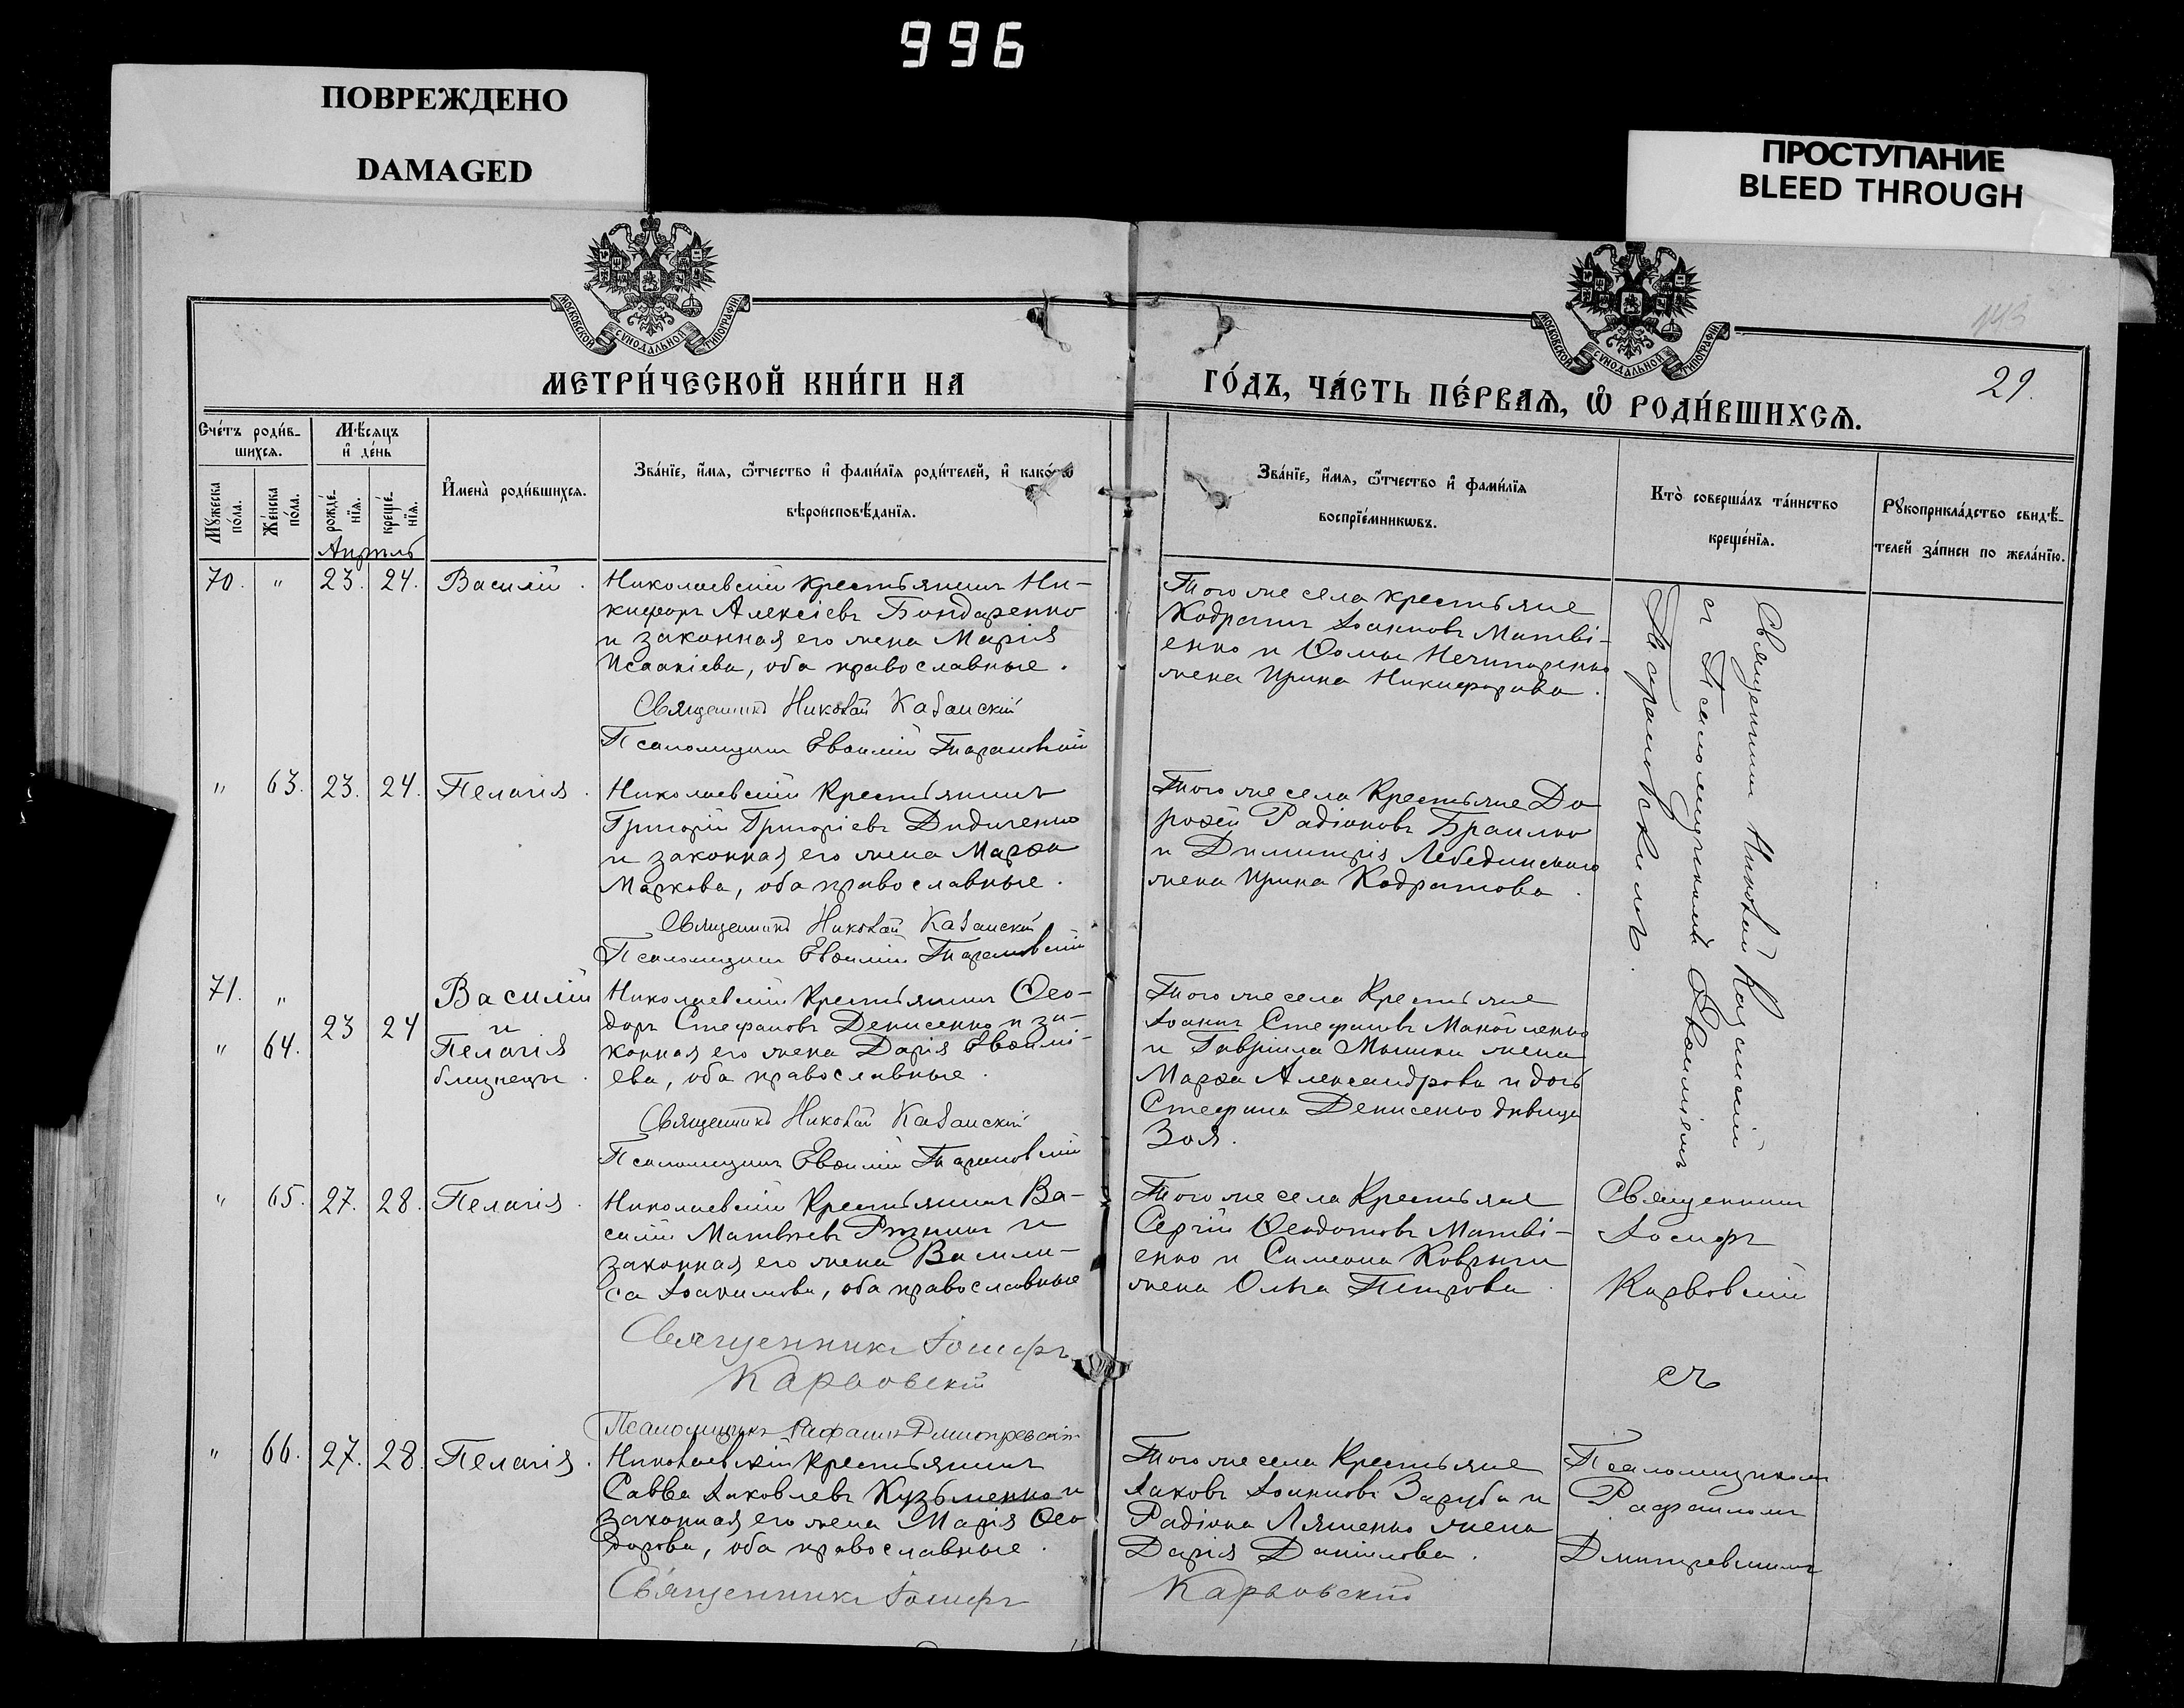 996
ПОВРЕЖДЕНО
DAMAGED
ПРОСТУПАНИЕ
BLEED THROUGH
МОСКОВСКОЙ СѴНОДАЛЬНОЙ ТИПОГРАФІИ
МОСКОВСКОЙ СѴНОДАЛЬНОЙ ТИПОГРАФІИ
МЕТРИ́ЧЕСКОЙ КНИ́ГИ НА
ГО́ДЪ, ЧА́СТЬ ПЕ́РВАѦ, Ѡ҆ РОДИ́ВШИХСѦ.
29.
Сче́тъ роди́в-
шихсѧ.
Мꙋ́жеска
по́ла.
Же́нска
по́ла.
Мѣ́сѧцъ
и҆ де́нь
рожде́-
нїѧ.
креще́-
нїѧ.
И҆мена̀ роди́вшихсѧ.
Зва́нїе, и҆́мѧ, ѻ҆́тчество и҆ фами́лїѧ роди́телей, и҆ како́гѡ
вѣроисповѣ́данїѧ.
Зва́нїе, и҆́мѧ, ѻ҆́тчество и҆ фами́лїѧ
воспрїе́мникѡвъ.
Кто̀ соверша́лъ та́инство
креще́нїѧ.
Рꙋкоприкла́дство свидѣ́-
телей за́писи по жела́нїю.
Апрѣль
70. " 23. 24. Василій.
Николаевскій крестьянинъ Ни-
кифоръ Алексіевъ Бондаренко
и законная его жена Марія
Исаакіева, оба православные.
Священникъ Николай Казанскій
Псаломщикъ Евѳимій Тарановскій
Того же села крестьяне
Кодратъ Іоанновъ Матві-
енко и Ѳомы Нечипоренко
жена Ирина Никифорова.
Священникъ Николай Казанскій
съ Псаломщикомъ Евѳиміемъ
Тарановскимъ.
" 63. 23. 24. Пелагія.
Николаевскій Крестьянинъ
Григорій Григоріевъ Дидиченко
и законная его жена Марѳа
Маркова, оба православные.
Священникъ Николай Казанскій
Псаломщикъ Евѳимій Тарановскій
Того же села Крестьяне До-
роѳей Радіоновъ Браилко
и Димитрія Лебединскаго
жена Ирина Кодратова.
71. "
" 64.
23 24
Василій
и
Пелагія
близнецы.
Николаевскій Крестьянинъ Ѳео-
доръ Стефановъ Денисенко и за-
конная его жена Дарія Евѳимі-
ева, оба православные.
Священникъ Николай Казанскій
Псаломщикъ Евѳимій Тарановскій
Того же села Крестьяне
Іоаннъ Стефановъ Манойленко
и Гавріила Мышки жена
Марѳа Александрова и дочь
Стефана Денисенко дѣвица
Зоя.
" 65. 27. 28. Пелагія.
Николаевскій Крестьянинъ Ва-
силій Матвѣевъ и
законная его жена Васили-
са Іоакимова, оба православные
Священникъ Іосифъ
Карвовскій
Псаломщикъ Рафаилъ Дмитревскій
Того же села Крестьяне
Сергій Ѳеодотовъ Матві-
енко и Симеона Коврыги
жена Ольга Петрова.
Священникъ
Іосифъ
Карвовскій
съ
" 66. 27. 28. Пелагія.
Николаевскій Крестьянинъ
Савва Іаковлевъ Кузьменко и
законная его жена Марія Ѳео-
дорова, оба православные.
Священникъ Іосифъ
Карвовскій
Того же села Крестьяне
Іаковъ Іоанновъ Заруба и
Радіона Ляшенко жена
Дарія Даніилова.
Псаломщикомъ
Рафаиломъ
Дмитревскимъ